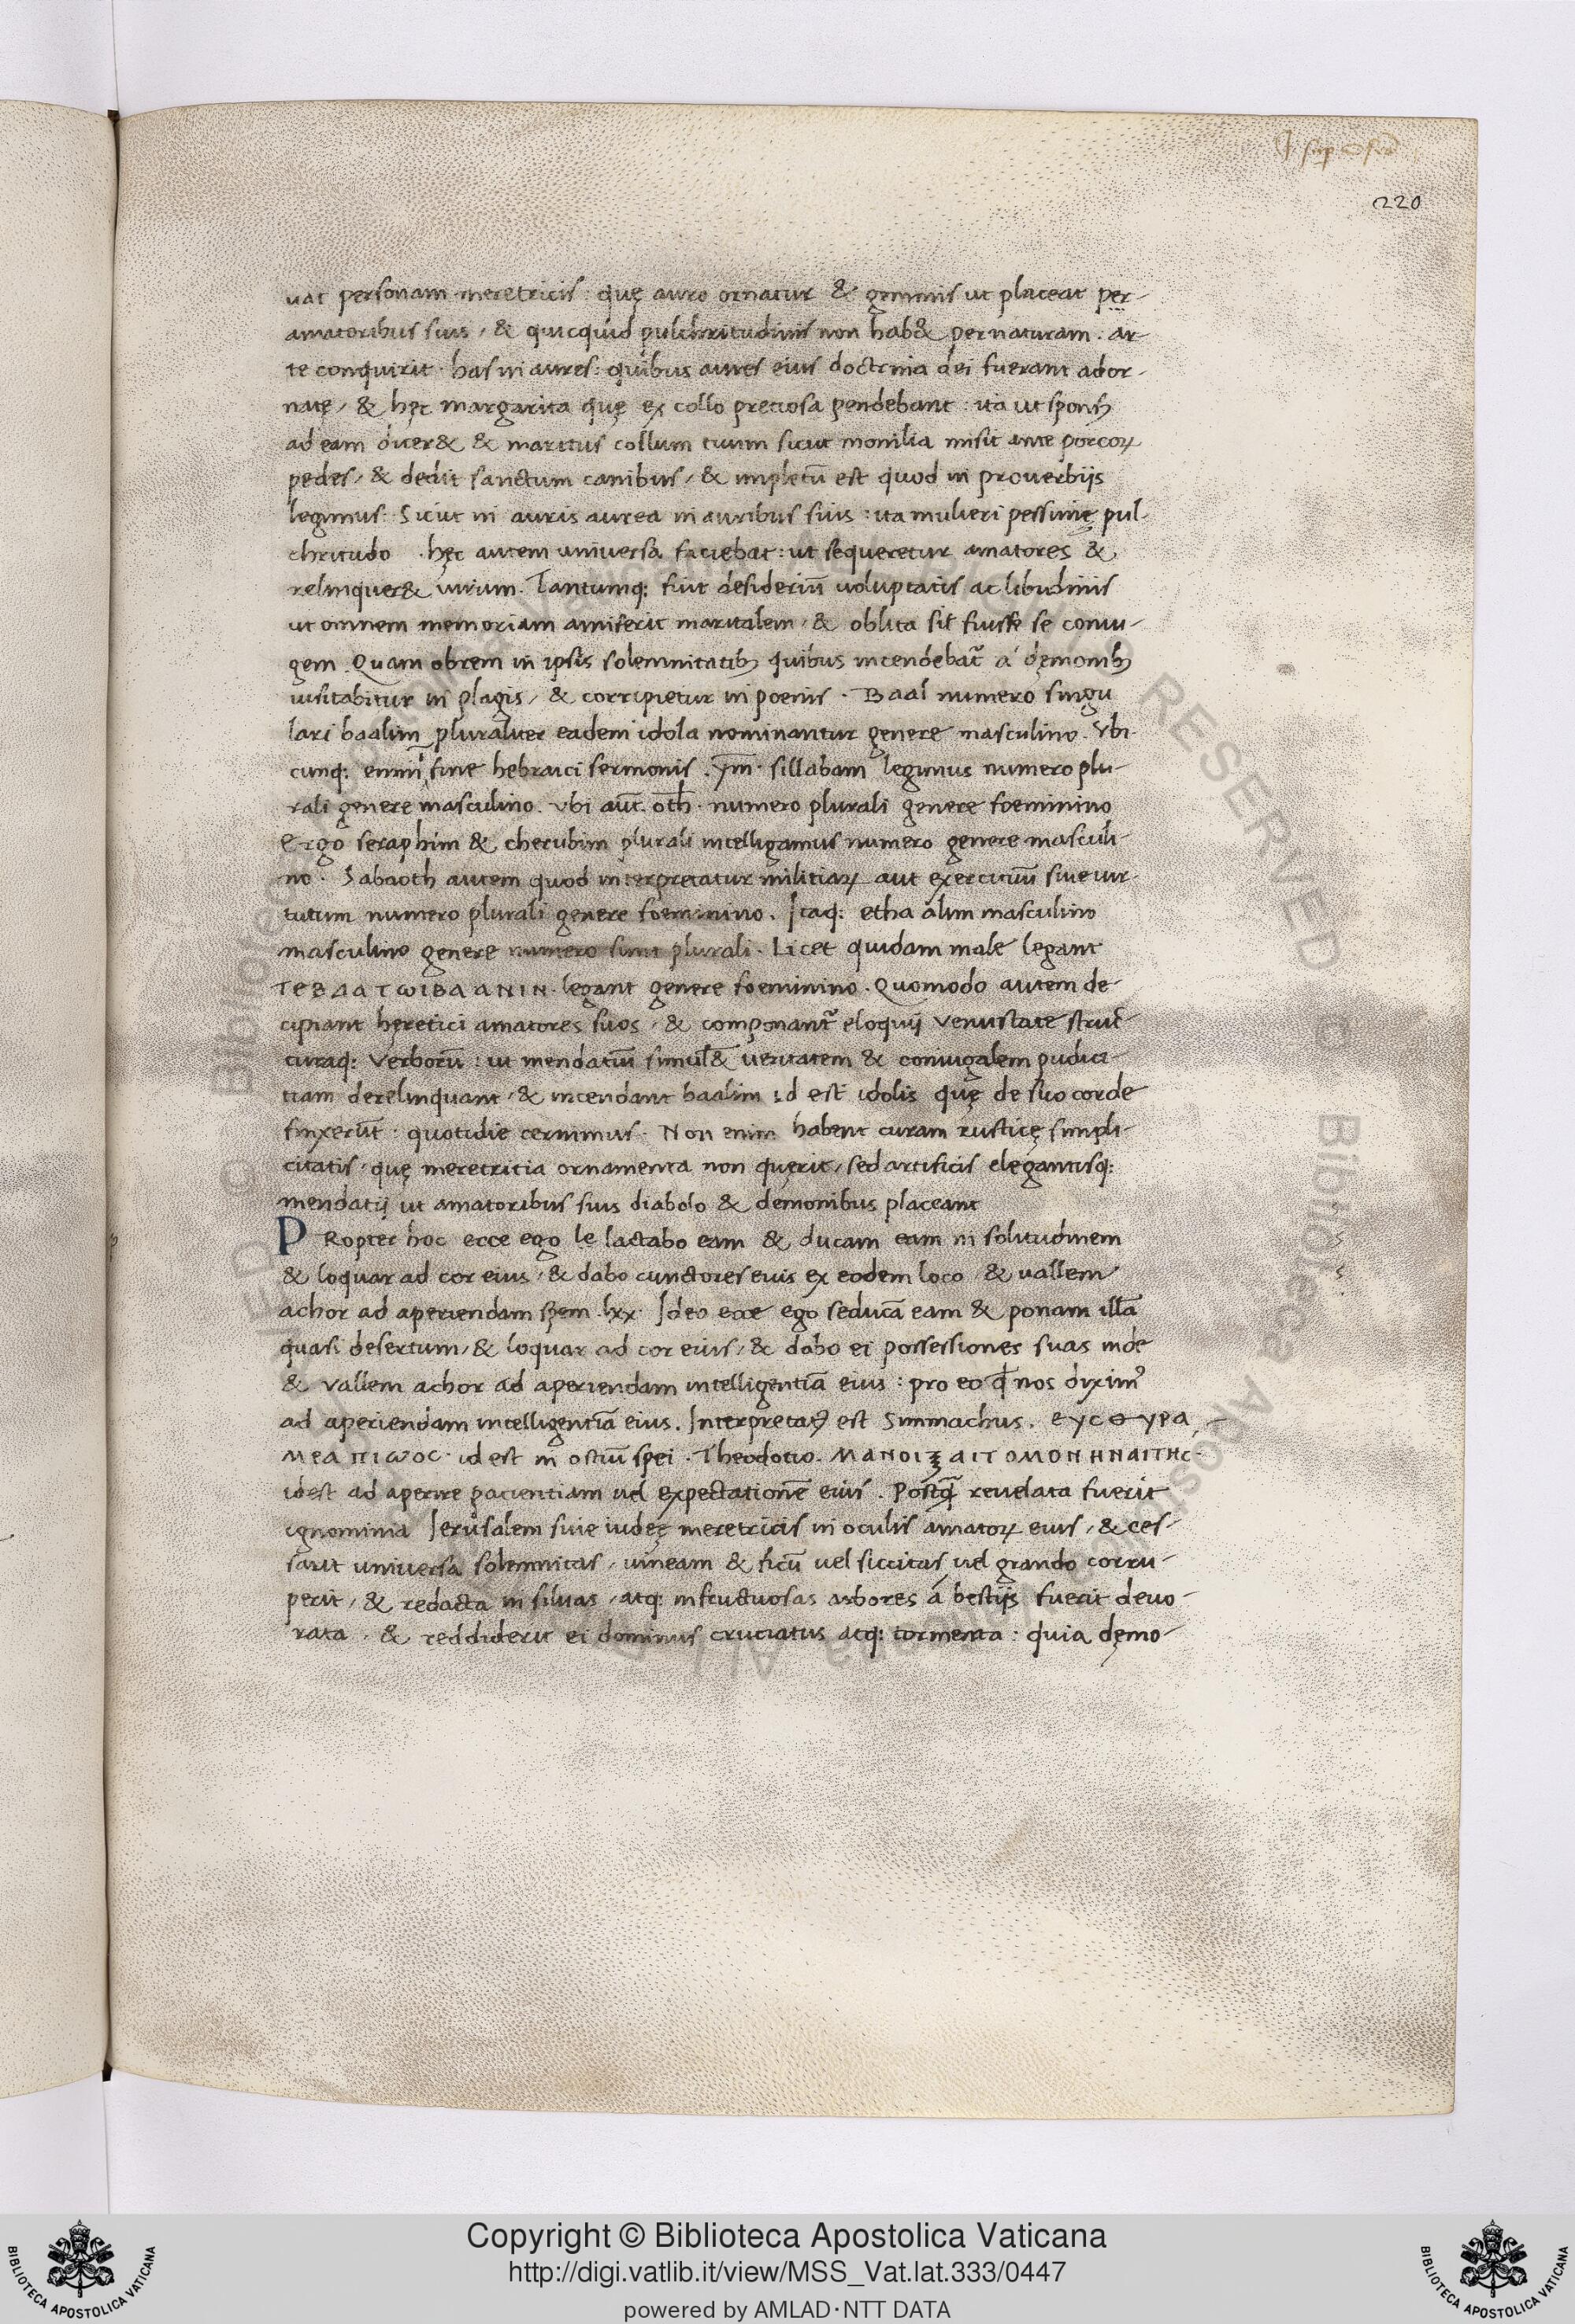 220
uat personam meretricis : quę auro ornatur & gemmis ut placeat per-
amatoribus suis, & quicquid pulchritudinis non hab& per naturam. ar-
te conquirit. has in aures : quibus aures eius doctrina dei fuerant ador-
natę, & hęc margarita quę ex collo preciosa pendebant : ita ut sponsꝫ
ad eam dicer& & maritus collum tuum sicut monilia misit ante porcoꝝ
pedes, & dedit sanctum canibus, & impletū est quod in proverbijs
legimus : Sicut in auris aurea in auribus suis : ita mulieri pessimę pul-
chritudo . hęc autem universa faciebat : ut sequeretur amatores &
relinquer& virum. Tantumq: fuit desideriū voluptatis ac libidinis
ut omnem memoriam amiserit maritalem, & oblita sit fuisse se coniu-
gem. Quam obrem in ipsis solemnitatibꝫ quibus incendebat᷑ á dęmonibꝫ
visitabitur in plagis, & corripietur in poenis. Baal numero singu
lari baalim pluraliter eadem idola nominantur genere masculino. Vbi-
cunq: enim ͥ fine hebraici sermonis . ym̅ . sillabam legimus numero plu-
rali genere masculino. vbi aut̅. oth̅ . numero plurali genere foeminino
Ergo seraphim & cherubim plurali intelligamus numero genere masculi-
no. Sabaoth autem quod interpretatur militiaꝝ aut exercituū sive vir-
tutum numero plurali genere foeminino. Itaq: etha álim masculino
masculino genere numero sunt plurali. Licet quidam male legant
ΤΕΒΔΑΤωΙΒΑΑΝΙΝ. legant genere foeminino. Quomodo autem de-
cipiant hęretici amatores suos, & componant᷑ eloquij venustate struc-
turaq: verborū : ut mendatiū simul& veritatem & coniugalem pudici-
tiam derelinquant, & incendant baalim id est idolis quę de suo corde
finxerūt. quotidie cernimus. Non enim habent curam rusticę simpli-
citatis. quę meretricia ornamenta non quęrit, sed artificis elegantisq:
mendatij ut amatoribus suis diabolo & demonibus placeant
PRopter hoc ecce ego le lactabo eam & ducam eam in solitudinem
& loquar ad cor eius, & dabo cunctores euis ex eodem loco & vallem
achor ad aperiendam spem. lxx. Ideo ecce ego seducā eam & ponam illā
quasi desertum, & loquar ad cor eius, & dabo ei possessiones suas inde
& vallem achor ad aperiendam intelligentiā eius : pro eo qđ nos diximꝰ
ad aperiendam intelligentiā eius. Interpretatꝰ est Simmachus. ΕΥCΘΥΡΑ,
ΜΕΑΠΙωΟC. id est in ostiū spei. Theodotio. ΜΑΝΟΙΞΑΙΤΟΜΟΝΗΝΑΙΤΗC.
idest ad aperire pacientiam vel expectationē eius. Postq̄ revelata fuerit
ignominia Ierusalem sive iudeę meretricis in oculis amatoꝝ eius, & ces-
sarit universa solemnitas, vineam & ficū vel siccitas vel grando corru-
perit, & redacta in silvas, atq: infructuosas arbores á bestijs fuerit devo-
rata, & reddiderit ei dominus cruciatus atq: tormenta : quia dęmo-
Copyright © Biblioteca Apostolica Vaticana
http://digi.vatlib.it/view/MSS_Vat.lat.333/0447
powered by AMLAD·NTT DATA
BIBLIOTECA APOSTOLICA VATICANA
BIBLIOTECA APOSTOLICA VATICANA